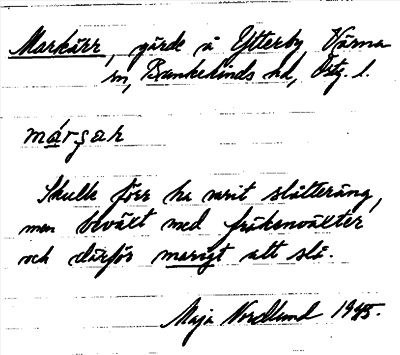 Markärr, gärde å Ytterby Värna
sn, Bankekinds hd, Östg. l.
márʂaʀ
Skulle förr ha varit slåtteräng,
men beväxt med fräkenväxter
och därför marigt att slå.
Maja Nordlund 1945.